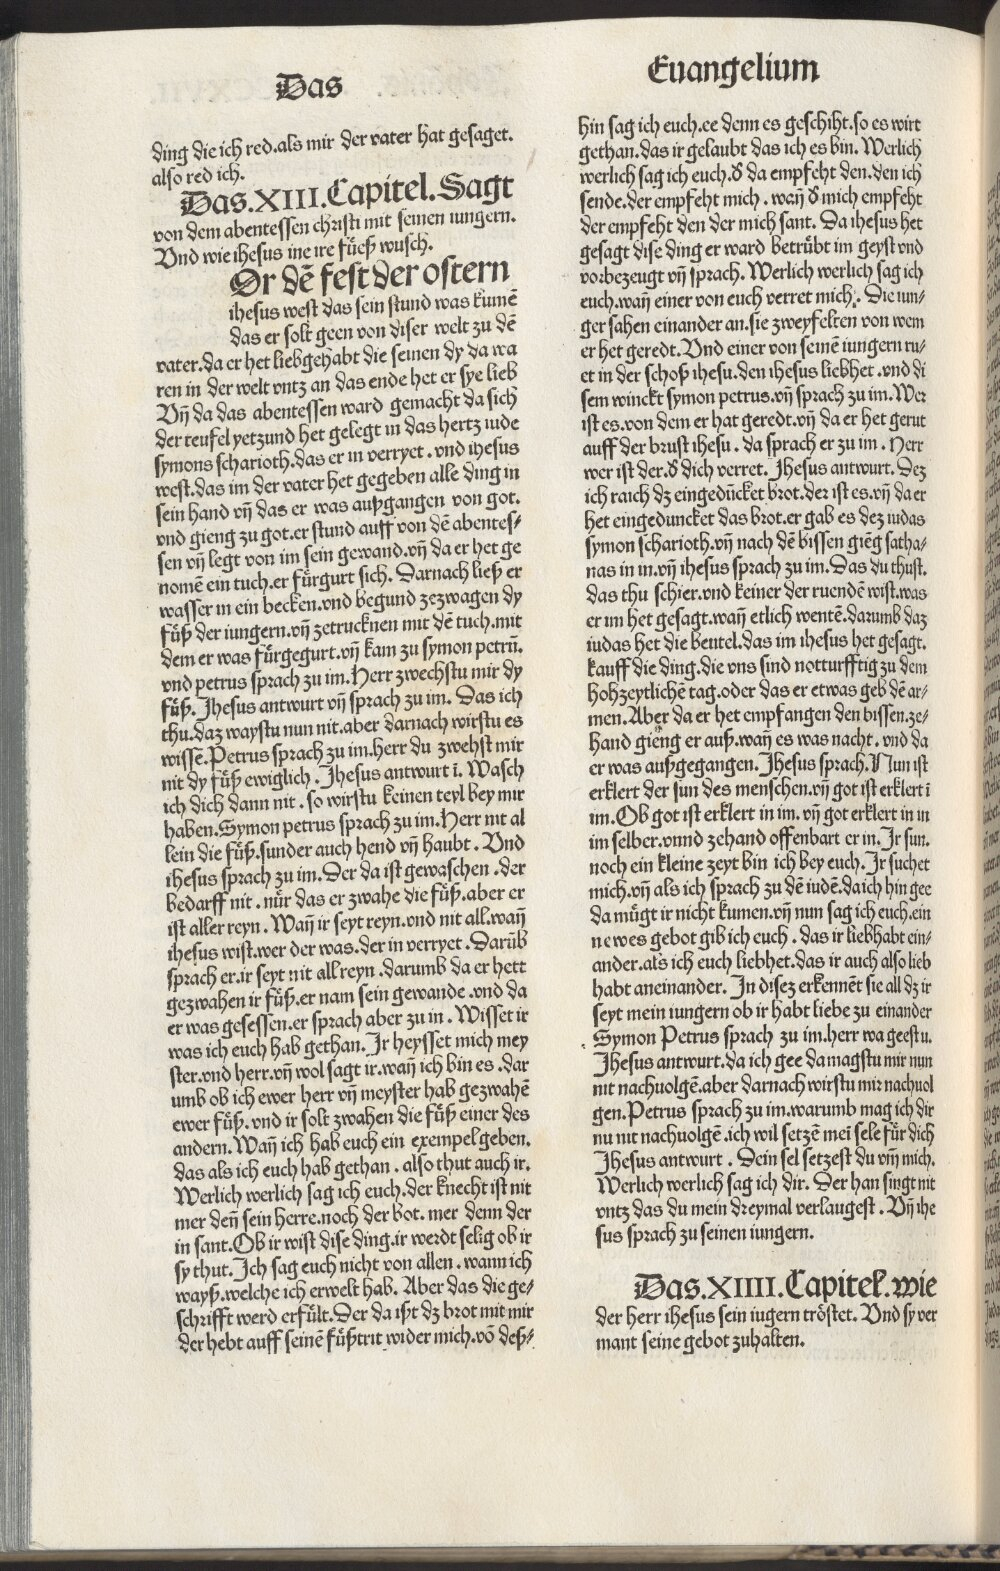 Das
ding die ich red.als mir der vater hat gesaget.
also red ich.
Das.XIII.Capitel.Sagt
von dem abentessen christi mit seinen iungern.
Vnd wie ihesus ine ire füeß wusch.
Or dē fest der ostern
ihesus west das sein stund was kumē
das er solt geen von diser welt zu dē
vater.da er het liebgehabt die seinen dy da wa
ren in der welt vntz an das ende het er sye lieb
Vn̄ da das abentessen ward gemacht da sich
der teufel yetzund het gelegt in das hertz iude
symons scharioth.das er in verryet. vnd ihesus
west.das im der vater het gegeben alle ding in
sein hand vn̄ das er was außgangen von got.
vnd gieng zu got.er stund auff von dē abentes⸗
sen vn̄ legt von im sein gewand.vn̄ da er het ge
nomē ein tuch.er fürgurt sich. Darnach ließ er
wasser in ein becken.vnd begund zezwagen dy
füß der iungern.vn̄ zetrucknen mit dē tuch.mit
dem er was fürgegurt.vn̄ kam zu symon petrū.
vnd petrus sprach zu im.Herr zwechstu mir dy
füß. Jhesus antwurt vn̄ sprach zu im. Das ich
thu.daz waystu nun nit.aber darnach wirstu es
wissē.Petrus sprach zu im.herr du zwehst mir
nit dy füß ewiglich. Jhesus antwurt ī. Wasch
ich dich dann nit. so wirstu keinen teyl bey mir
haben.Symon petrus sprach zu im.Herr nit al
lein die füß.sunder auch hend vn̄ haubt. Vnd
ihesus sprach zu im.Der da ist gewaschen.der
bedarff nit. nür das er zwahe die füß.aber er
ist aller reyn. Wan̄ ir seyt reyn.vnd nit all.wan̄
ihesus wist.wer der was.der in verryet. Darūb
sprach er.ir seyt nit all reyn.darumb da er hett
gezwahen ir füß.er nam sein gewande.vnd da
er was gesessen.er sprach aber zu in. Wisset ir
was ich euch hab gethan.Ir heysset mich mey
ster.vnd herr.vn̄ wol sagt ir.wan̄ ich bin es.dar
umb ob ich ewer herr vn̄ meyster hab gezwahē
ewer füß. vnd ir solt zwahen die füß einer des
andern. Wan̄ ich hab euch ein exempel geben.
das als ich euch hab gethan. also thut auch ir.
Werlich werlich sag ich euch.der knecht ist nit
mer den̄ sein herre.noch der bot. mer denn der
in sant.Ob ir wist dise ding.ir werdt selig ob ir
sy thut. Ich sag euch nicht von allen. wann ich
wayß.welche ich erwelt hab. Aber das die ge⸗
schrifft werd erfült.Der da ißt dz brot mit mir
der hebt auff seinē füßtrit wider mich.vō deß⸗
Euangelium
hin sag ich euch.ee denn es geschiht.so es wirt
gethan.das ir gelaubt das ich es bin. Werlich
werlich sag ich euch.d̄ da empfeht den.den ich
sende.der empfeht mich. wan̄ d̄ mich empfeht
der empfeht den der mich sant. Da ihesus het
gesagt dise ding er ward betrübt im geyst vnd
vorbezeugt vn̄ sprach. Werlich werlich sag ich
euch.wan̄ einer von euch verret mich. Die iun⸗
ger sahen einander an.sie zweyfelten von wem
er het geredt. Vnd einer von seinē iungern ru⸗
et in der schoß ihesu.den ihesus liebhet.vnd di
sem winckt symon petrus.vn̄ sprach zu im.Wer
ist es.von dem er hat geredt.vn̄ da er het gerut
auff der brust ihesu. da sprach er zu im. Herr
wer ist der.d̄ dich verret. Jhesus antwurt. Dez
ich raich dz eingedūcket brot.der ist es.vn̄ da er
het eingeduncket das brot.er gab es dez iudas
symon scharioth.vn̄ nach dē bissen giēg satha⸗
nas in in.vn̄ ihesus sprach zu im.Das du thust.
das thu schier.vnd keiner der ruendē wist.was
er im het gesagt.wan̄ etlich wentē.darumb daz
iudas het die beutel.das im ihesus het gesagt.
kauff die ding.die vns sind notturfftig zu dem
hohzeytlichē tag.oder das er etwas geb dē ar⸗
men. Aber da er het empfangen den bissen.ze⸗
hand gieng er auß.wan̄ es was nacht. vnd da
er was außgegangen. Jhesus sprach.Nun ist
erklert der sun des menschen.vn̄ got ist erklert ī
im.Ob got ist erklert in im. vn̄ got erklert in in
im selber.vnnd zehand offenbart er in. Ir sun.
noch ein kleine zeyt bin ich bey euch. Ir suchet
mich.vn̄ als ich sprach zu dē iudē.da ich hin gee
da mügt ir nicht kumen.vn̄ nun sag ich euch.ein
newes gebot gib ich euch. das ir liebhabt ein⸗
ander.als ich euch liebhet.das ir auch also lieb
habt aneinander. In disez erkennēt sie all dz ir
seyt mein iungern ob ir habt liebe zu einander
Symon Petrus sprach zu im.herr wa geestu.
Jhesus antwurt.da ich gee da magstu mir nun
nit nachuolgē.aber darnach wirstu mir nachuol
gen.Petrus sprach zu im.warumb mag ich dir
nu nit nachuolgē.ich wil setzē mei sele für dich
Jhesus antwurt. Dein sel setzest du vm̄ mich.
Werlich werlich sag ich dir. Der han singt nit
vntz das du mein dreymal verlaugest. Vn̄ ihe
sus sprach zu seinen iungern.
Das.XIIII.Capitel.wie
der herr ihesus sein iugern tröstet. Vnd sy ver
mant seine gebot zuhalten.